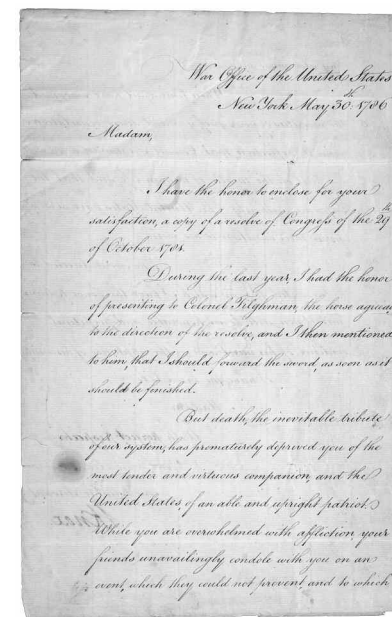 War Office of the United States
New York May 30th. 1786
Madam,
I have the honor to enclose for your
satisfaction, a copy of a resolve of Congress of the 29th
of October 1781.
During the last year, I had the honor
of presenting to Colonel Tilghman, the horse agreea
to the direction of the resolve, and I then mentioned
to him, that I should forward the sword, as soon as it
should be finished.
But death, the inevitable tribute
of our system, has prematurely deprived you of the
most tender and virtuous companion, and the
United States, of an able and upright patriot.
While you are overwhelmed with affliction, your
friends unavailingly condole with you on an
event, which they could not prevent, and to which